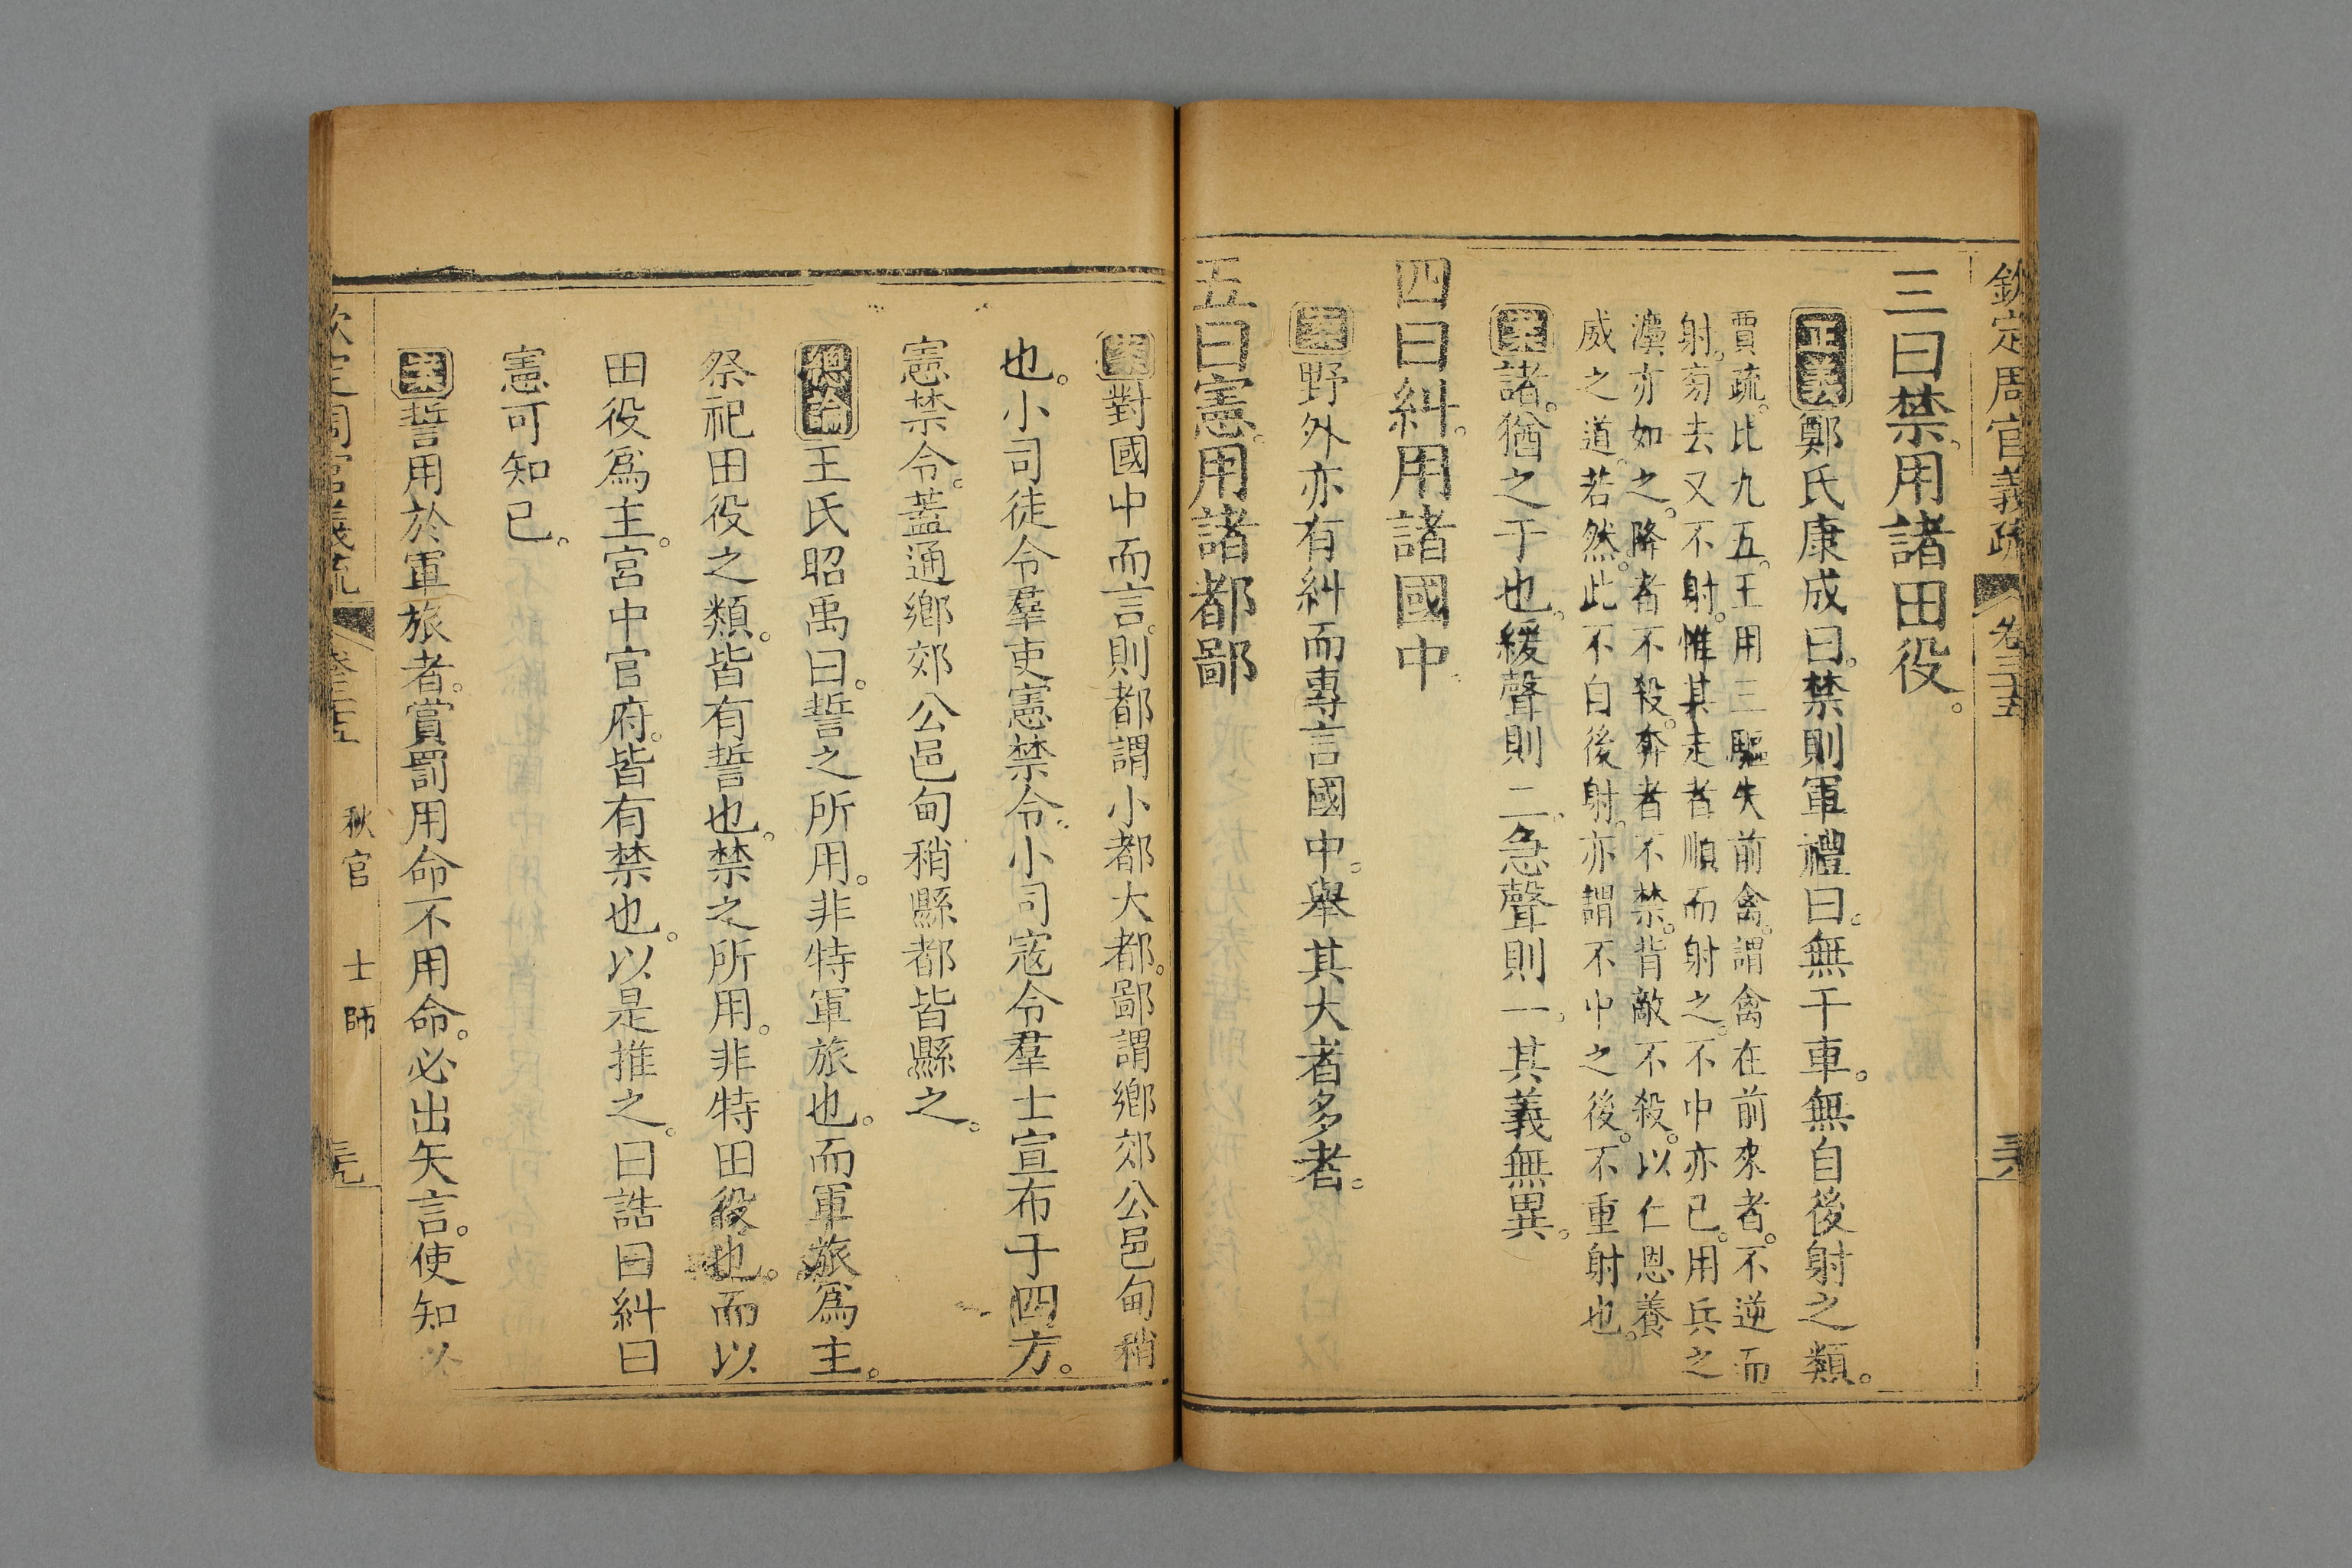 欽定周官義疏 卷三十五
三曰禁用諸田役。
正義鄭氏康成曰。禁則軍禮曰。無干車。無自後射之類。
賈疏。比九五。王用三驅失前禽。謂禽在前來者。不逆而
射。旁去又不射。惟其走者順而射之。不中亦已。用兵之
灋亦如之。降者不殺。奔者不禁。背敵不殺。以仁恩養
威之道。若然。此不自後射。亦謂不中之後。不重射也。
案諸。猶之于也。緩聲則二。急聲則一。其義無異。
四曰糾。用諸國中。
案野外亦有糾而專言國中。舉其大者多者。
五曰憲。用諸都鄙
案對國中而言。則都謂小都大都。鄙謂鄉郊公邑甸稍
也。小司徒令羣吏憲禁令。小司寇令羣士宣布于四方。
憲禁令。蓋通鄉郊公邑甸稍縣都皆縣之。
總論王氏昭禹曰。誓之所用。非特軍旅也。而軍旅爲主。
祭祀田役之類。皆有誓也。禁之所用。非特田役也。而以
田役爲主。宮中官府。皆有禁也。以是推之。曰誥曰糾曰
憲可知已。
案誓用於軍旅者。賞罰用命不用命。必出矢言。使知以
欽定周官義疏 卷三十五 秋官 士師 三九